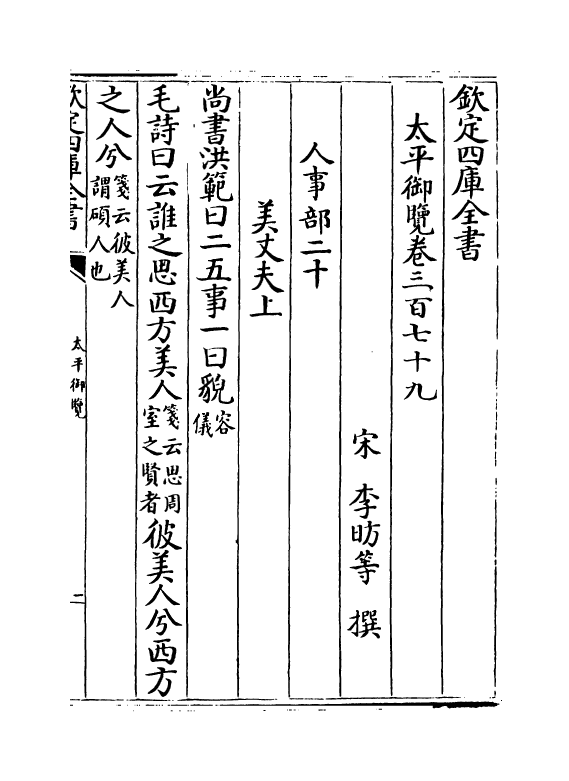 欽定四庫全書
太平御覽卷三百七十九
宋 李昉等 撰
人事部二十
美丈夫上
尚書洪範曰二五事一曰貌容儀
毛詩曰云誰之思西方美人箋云思周室之賢者彼美人兮西方
之人兮箋云彼美人謂碩人也
欽定四庫全書
太平御覽
二